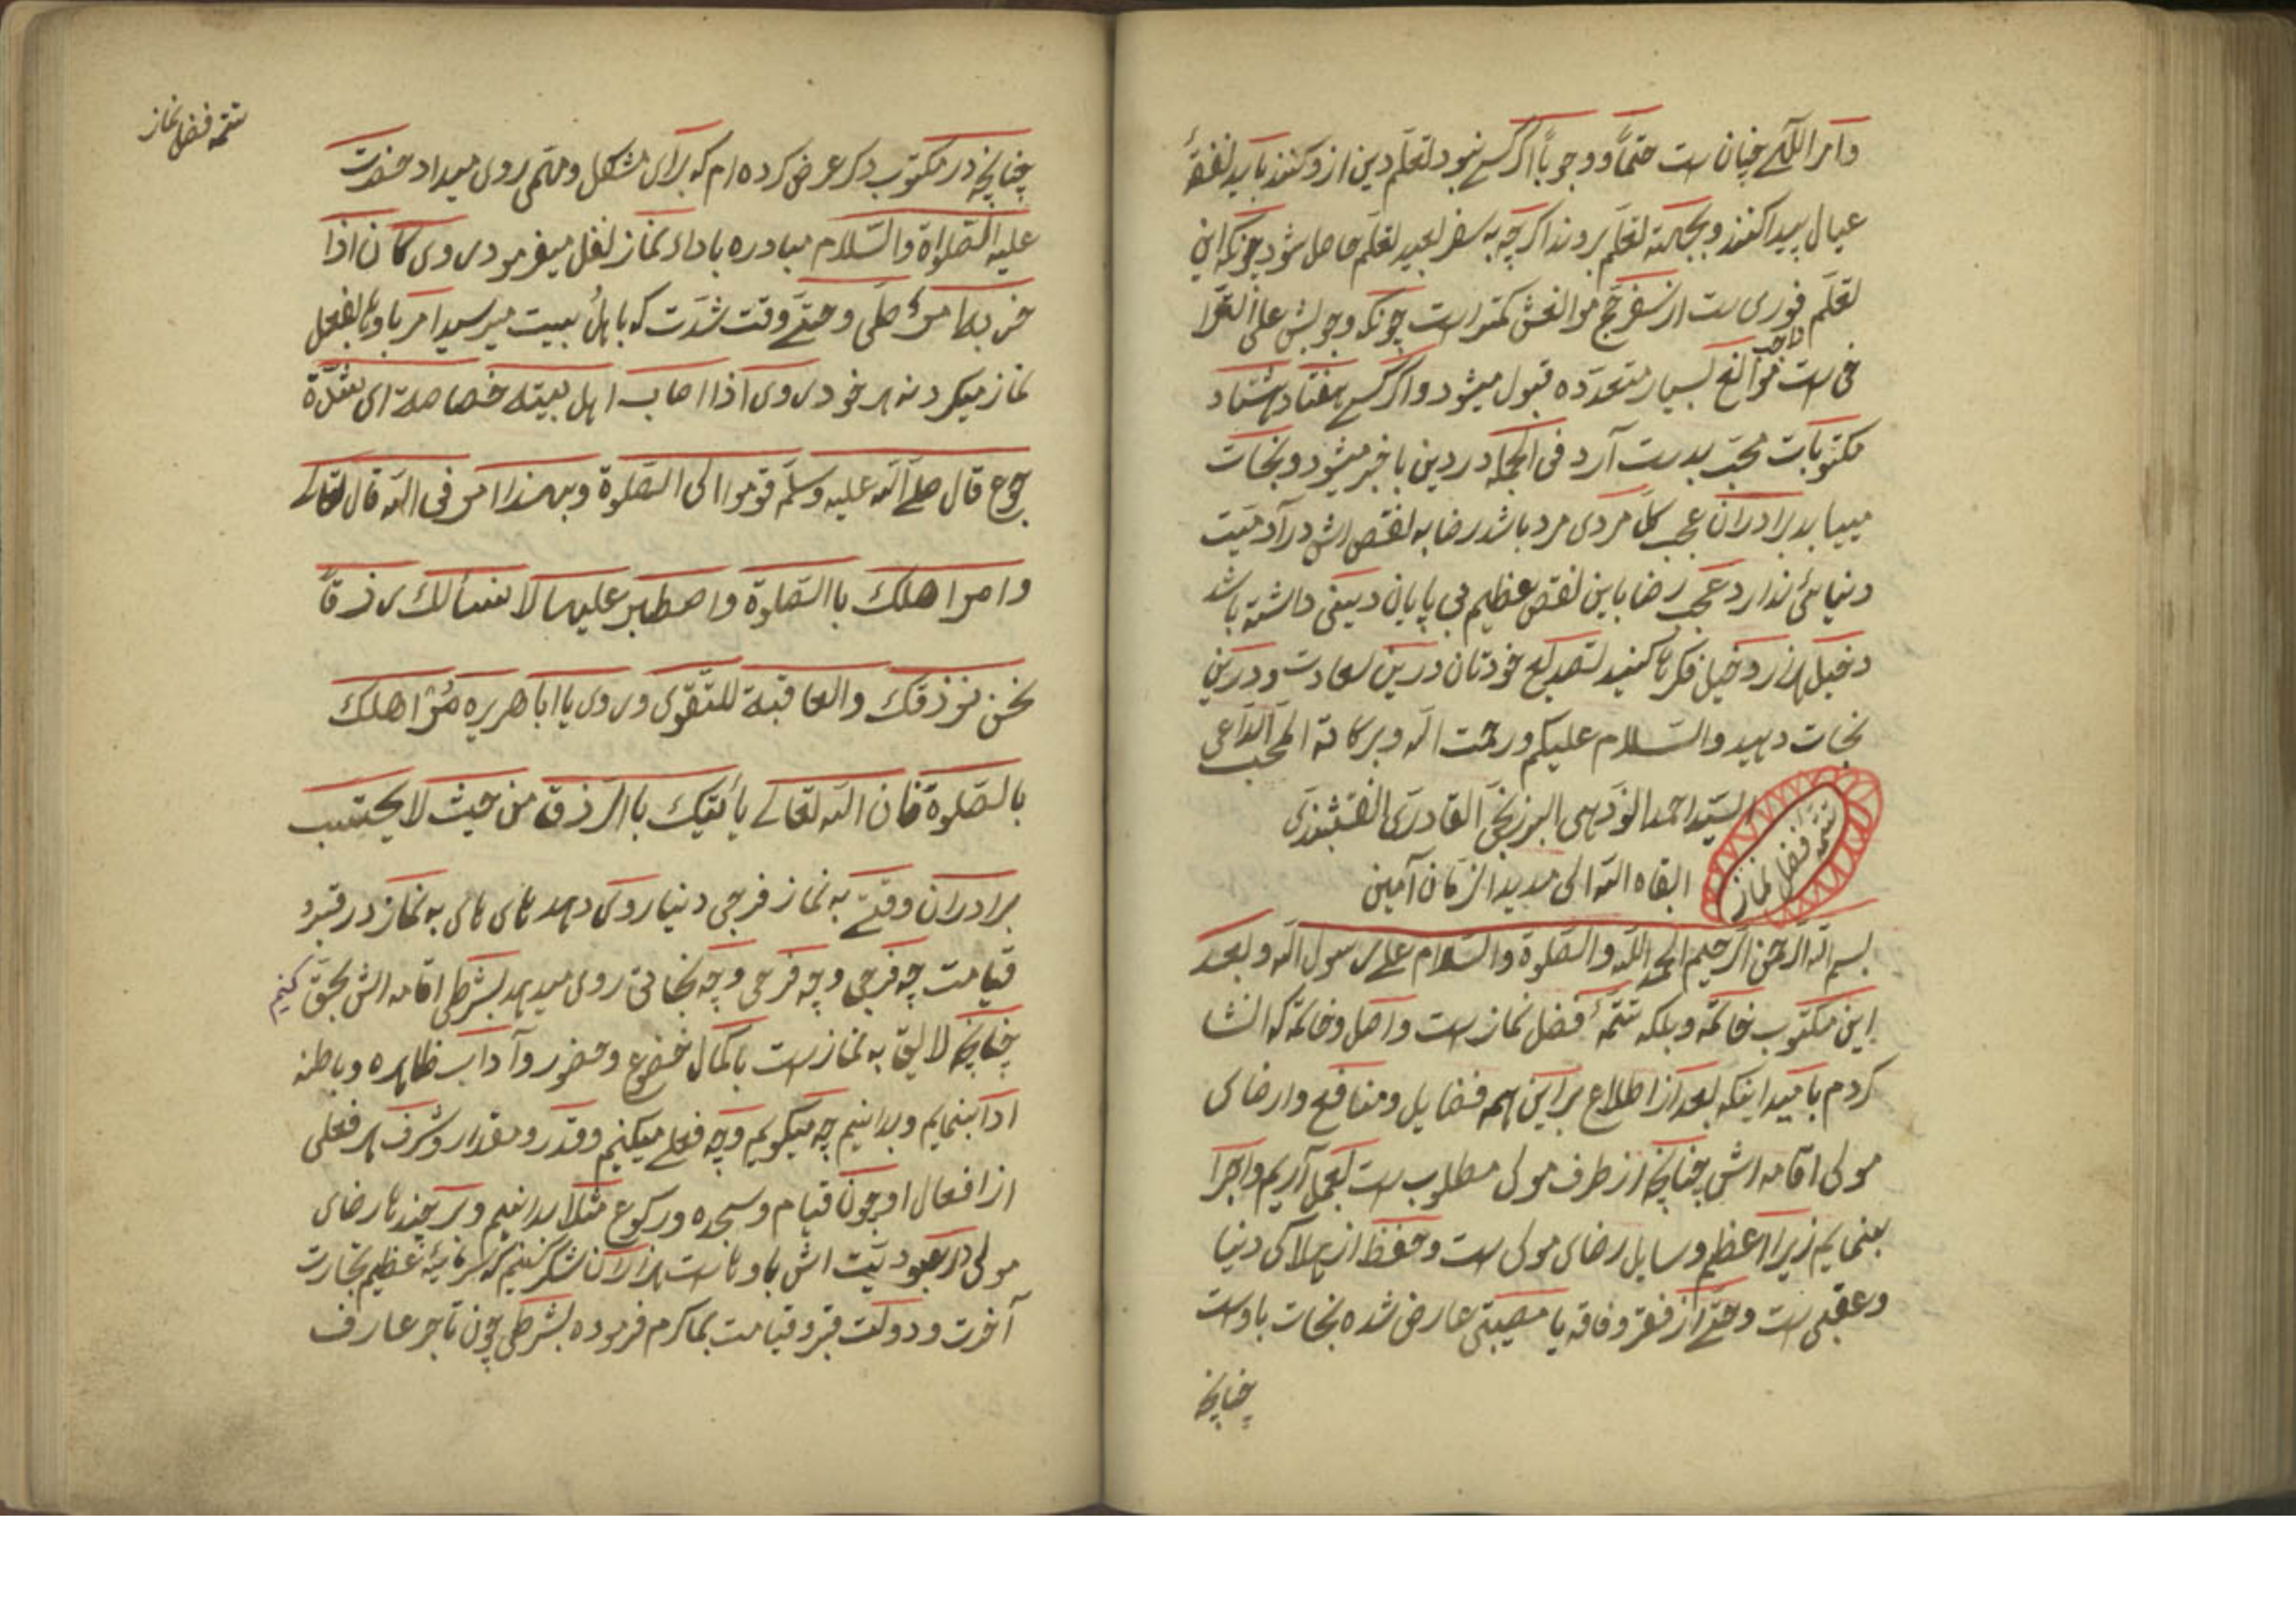 وامر اللّهی چنان ست حتماً ووجوباً اگر کسی نبود لتعلّم دین ازو کنند باید نفقهٔ
عیال پیدا کنند وبجهة تعلّم بروند اگرچه به سفر بعید تعلّم حاصل شود چونکه این
تعلّم فوری ست از سفر حج موانعش کمتر است چونکه وجوبش علی
ست موانع بسیار متعدّده قبول میشود واگر کسی هفتاد هشتاد
مکتوبات محب بدست آرد فی الجمله در دین باخبر میشود ونجات
مییابد برادران عجب کل مردی مرد باشد رضا به نقص اش در آدمیت
دنیائی ندارد عجب رضا باین نقص عظیم بی پایان دینی داشته باشد
دخیل هزار دخیل فکرها کنید تصدیع خودتان درین سعادت ودرین
نجات دهید والسّلام علیکم ورحمت الله وبرکاته المحب الدّاعی
السّید احمد النّودهی البرزنجی القادری النقشبندی
ابقاه الله الی مدید الزّمان آمین
تتمّه فضل نماز
بسم الله الرّحمن الرّحیم الحمد للّه والصّلوة والسّلام علی رسول الله وبعد
این مکتوب خاتمه وبلکه تتمّهٔ فضل نماز ست واصل وخاتمه که انشا
کردم بامید اینکه بعد از اطلاع بر این همه فضایل ومنافع وارضای
مولی اقامه اش چنانچه از طرف مولی مطلوب ست بعمل آریم واجرا
بنمایم زیرا اعظم وسایل رضای مولی ست وحفظ از هلاکی دنیا
وعقبی ست وحتّی از فقر وفاقه یا مصیبتی عارض شده نجات باوست
چنانچه
تتمّه فضل نماز
چنانچه در مکتوب دکر عرض کرده ام که برای مشکل ومهمی روی میداد حضرت
علیه الصّلواة والسّلام مبادره باداء نماز نفل میفرمود روی کان اذا
حزبه امرٌ صلّی وحتّی وقت شدّت که باهل بیت میرسید امر باوها بفعل
نماز میکرد نه هر خود روی اذا اصاب اهل بیته خصاصة ای بقلّة
جوع قال صلّی الله علیه وسلّم قوموا الی الصّلوة وبهذا امرنی الله قال تعالی
وامر اهلك باالصّلوة واصطبر علیها لا نسألك رزقاً
نحن نرزقك والعاقبة للتّقوی وروی یا ابا هریره مُرْ اهلك
بالصّلوة فان الله تعالی یأتیك باالرّزق من حیث لا یحتسب
برادران وقتی به نماز فرجی دنیا روی دهد های های به نماز در قبر و
قیامت چه فرجی وچه فرحی وچه نجاتی روی میدهد بشرطی اقامه اش بحقّ کنیم
چنانچه لایق به نماز ست باکمال خضوع وحضور وآداب ظاهره وباطنه
ادا بنمایم وبدانیم چه میگویم وچه فعلی میکنیم وقدر ومقدار وشرف هر فعلی
از افعال او چون قیام وسجده ورکوع مثلا بدانیم وهر چند ها رضای
مولی در عبودیّت اش باوهاست هزاران شکر کنیم که سرمایهٔ عظیم تجارت
آخرت ودولت قبر وقیامت بما کرم فرموده بشرطی چون تاجر عارف